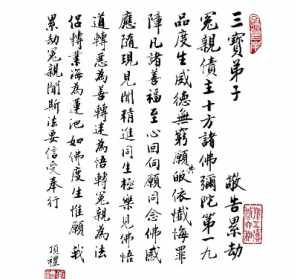 三寶弟子　敬告累劫
冤親債主十方諸佛彌陀第一九
品度生威德無窮願共皈依懺悔罪
障凡諸善福至心回向願同念佛感
應隨現見聞精進同生極樂見佛悟
道轉惡為善轉迷為悟轉冤親為法
侶轉業海為蓮池如佛度生惟願我
累劫冤親聞斯法要信受奉行
頂禮